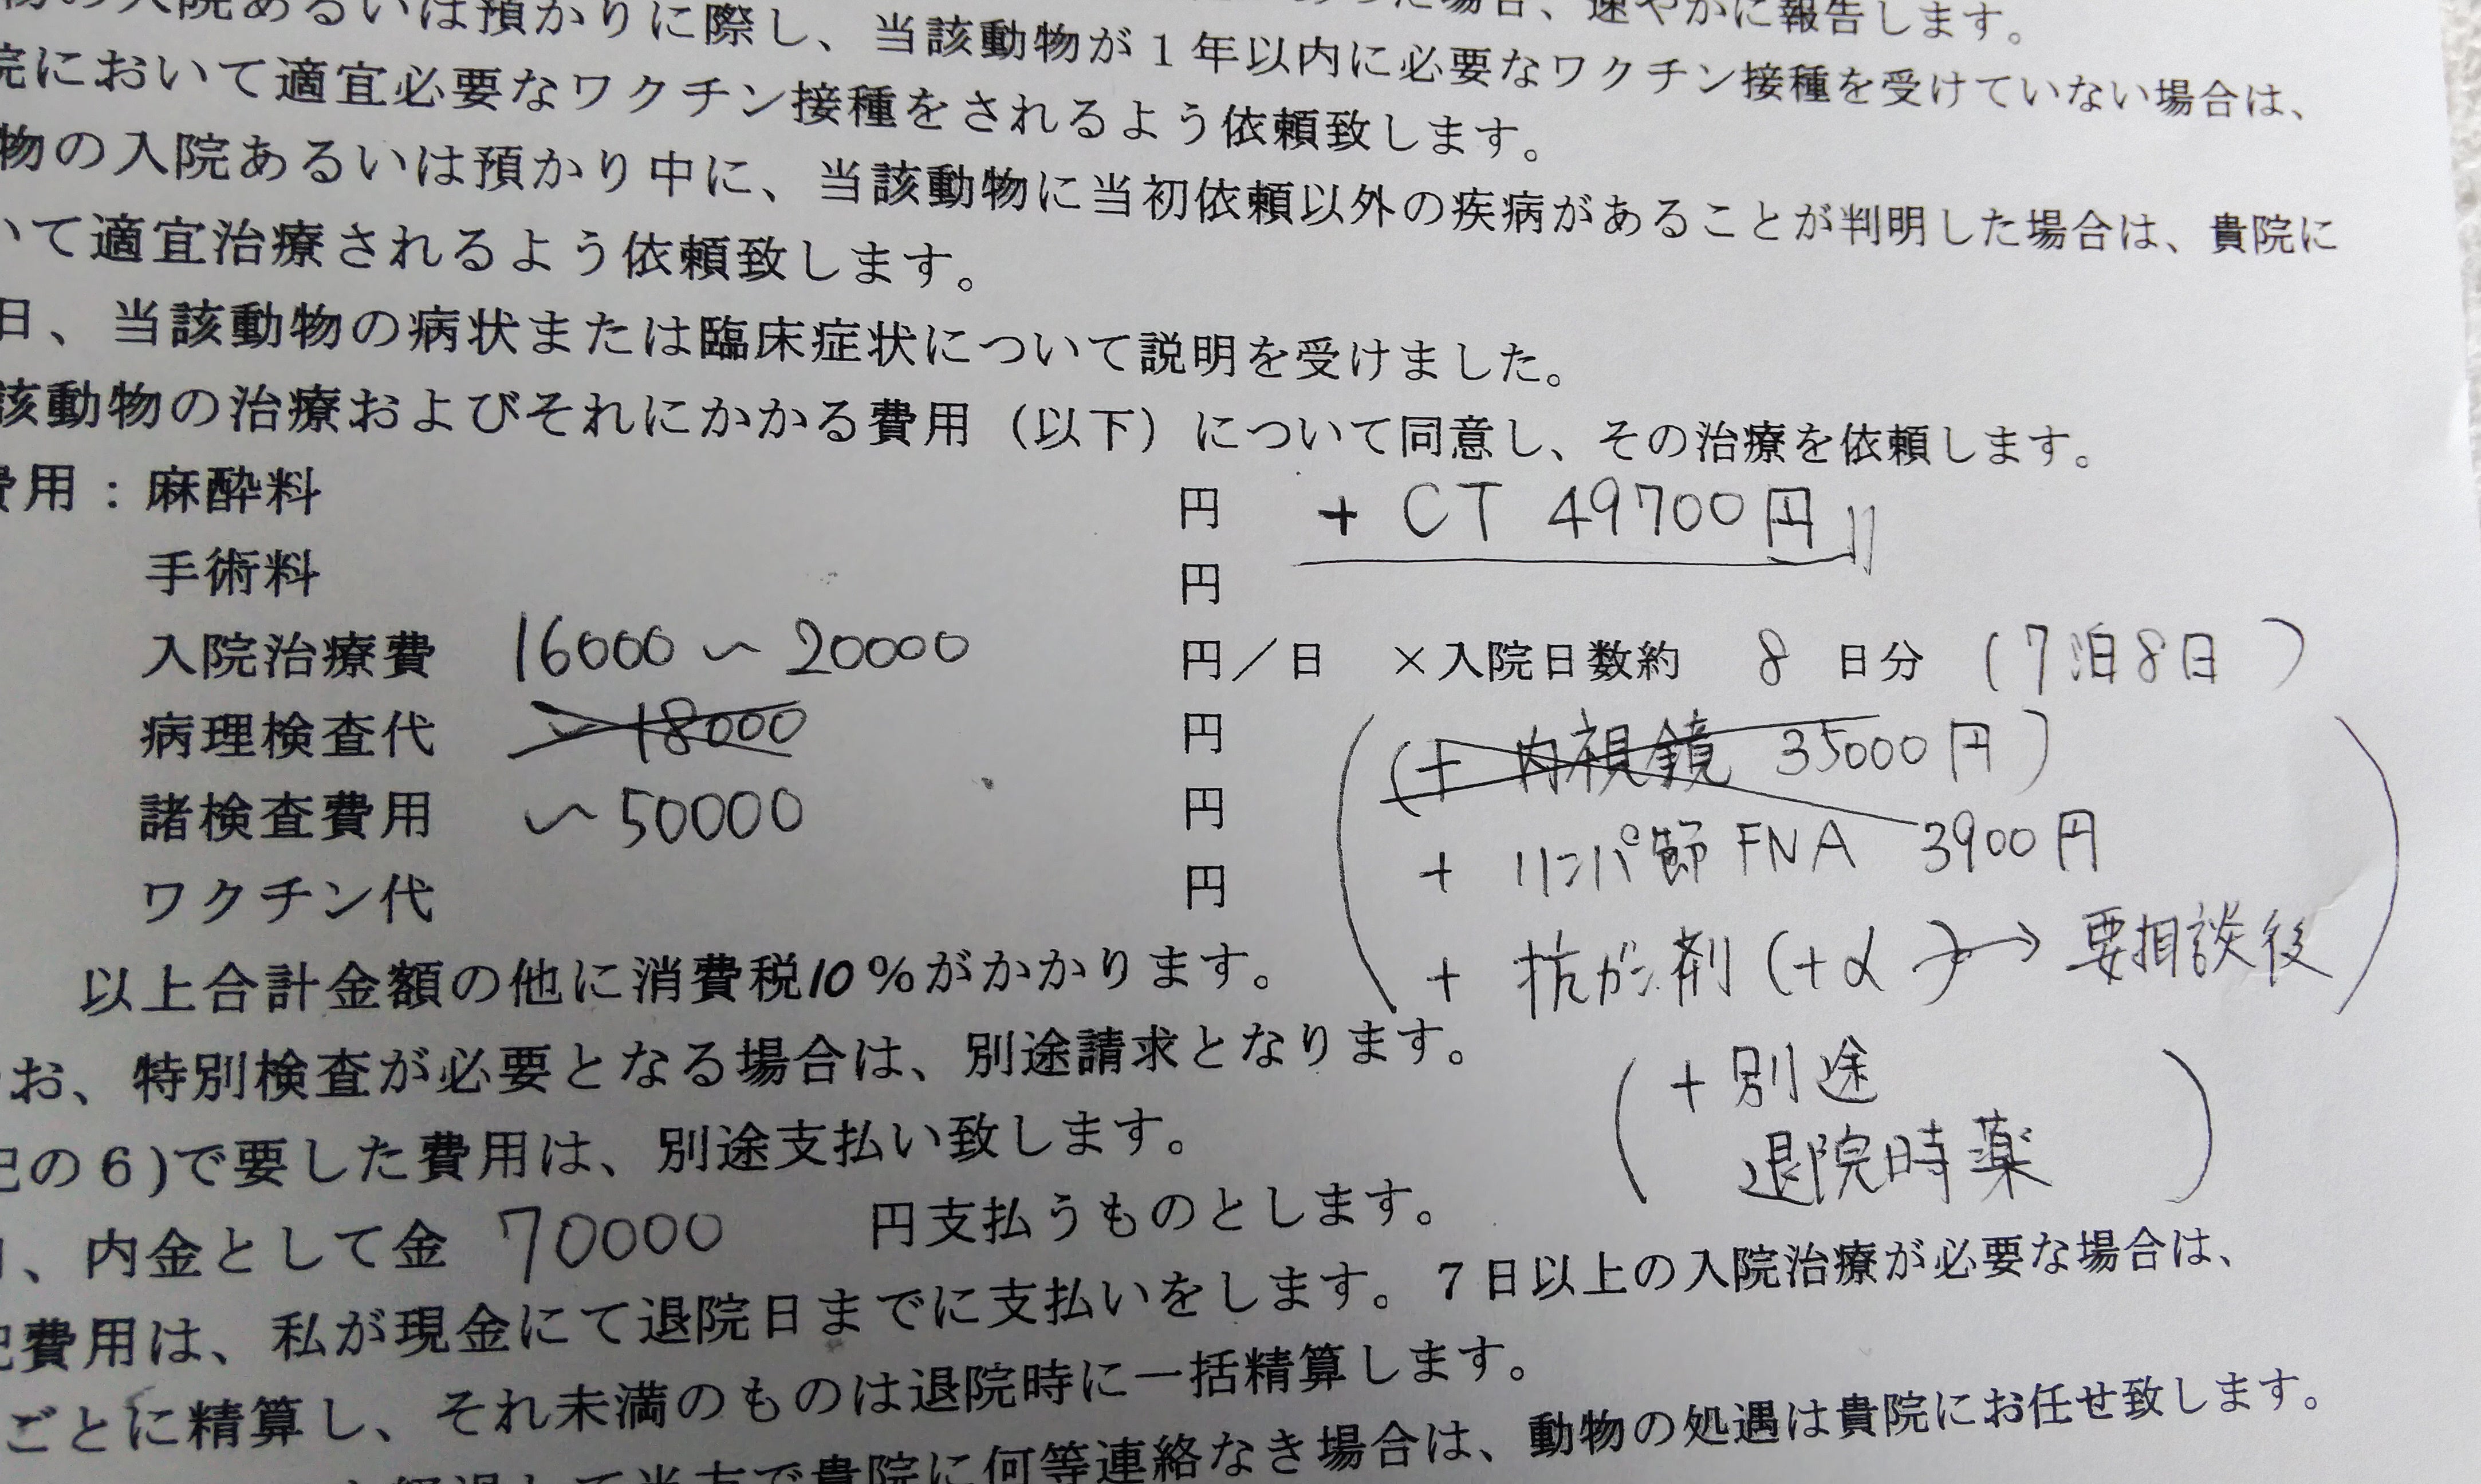 の入院あるいは預かりに際し、当該動物が1年以内に必要なワクチン接種を受けていない場合は、
院において適宜必要なワクチン接種をされるよう依頼致します。
物の入院あるいは預かり中に、当該動物に当初依頼以外の疾病があることが判明した場合は、貴院に
いて適宜治療されるよう依頼致します。
日、当該動物の病状または臨床症状について説明を受けました。
該動物の治療およびそれにかかる費用（以下）について同意し、その治療を依頼します。
費用：麻酔料 円 + CT 49700円
手術料 円
入院治療費 16000 〜 20000 円／日 ×入院日数約 8 日分 (7泊8日)
病理検査代 〜 18000 円 (+ 内視鏡 35000円)
諸検査費用 〜 50000 円 + リンパ節 FNA 3900円
ワクチン代 円
+ 抗ガン剤 (+α) → 要相談後
以上合計金額の他に消費税10%がかかります。
お、特別検査が必要となる場合は、別途請求となります。
(+ 別途
退院時薬)
記の6)で要した費用は、別途支払い致します。
、内金として金 70000 円支払うものとします。
費用は、私が現金にて退院日までに支払いをします。7日以上の入院治療が必要な場合は、
ごとに精算し、それ未満のものは退院時に一括精算します。
何等連絡なき場合は、動物の処遇は貴院にお任せ致します。